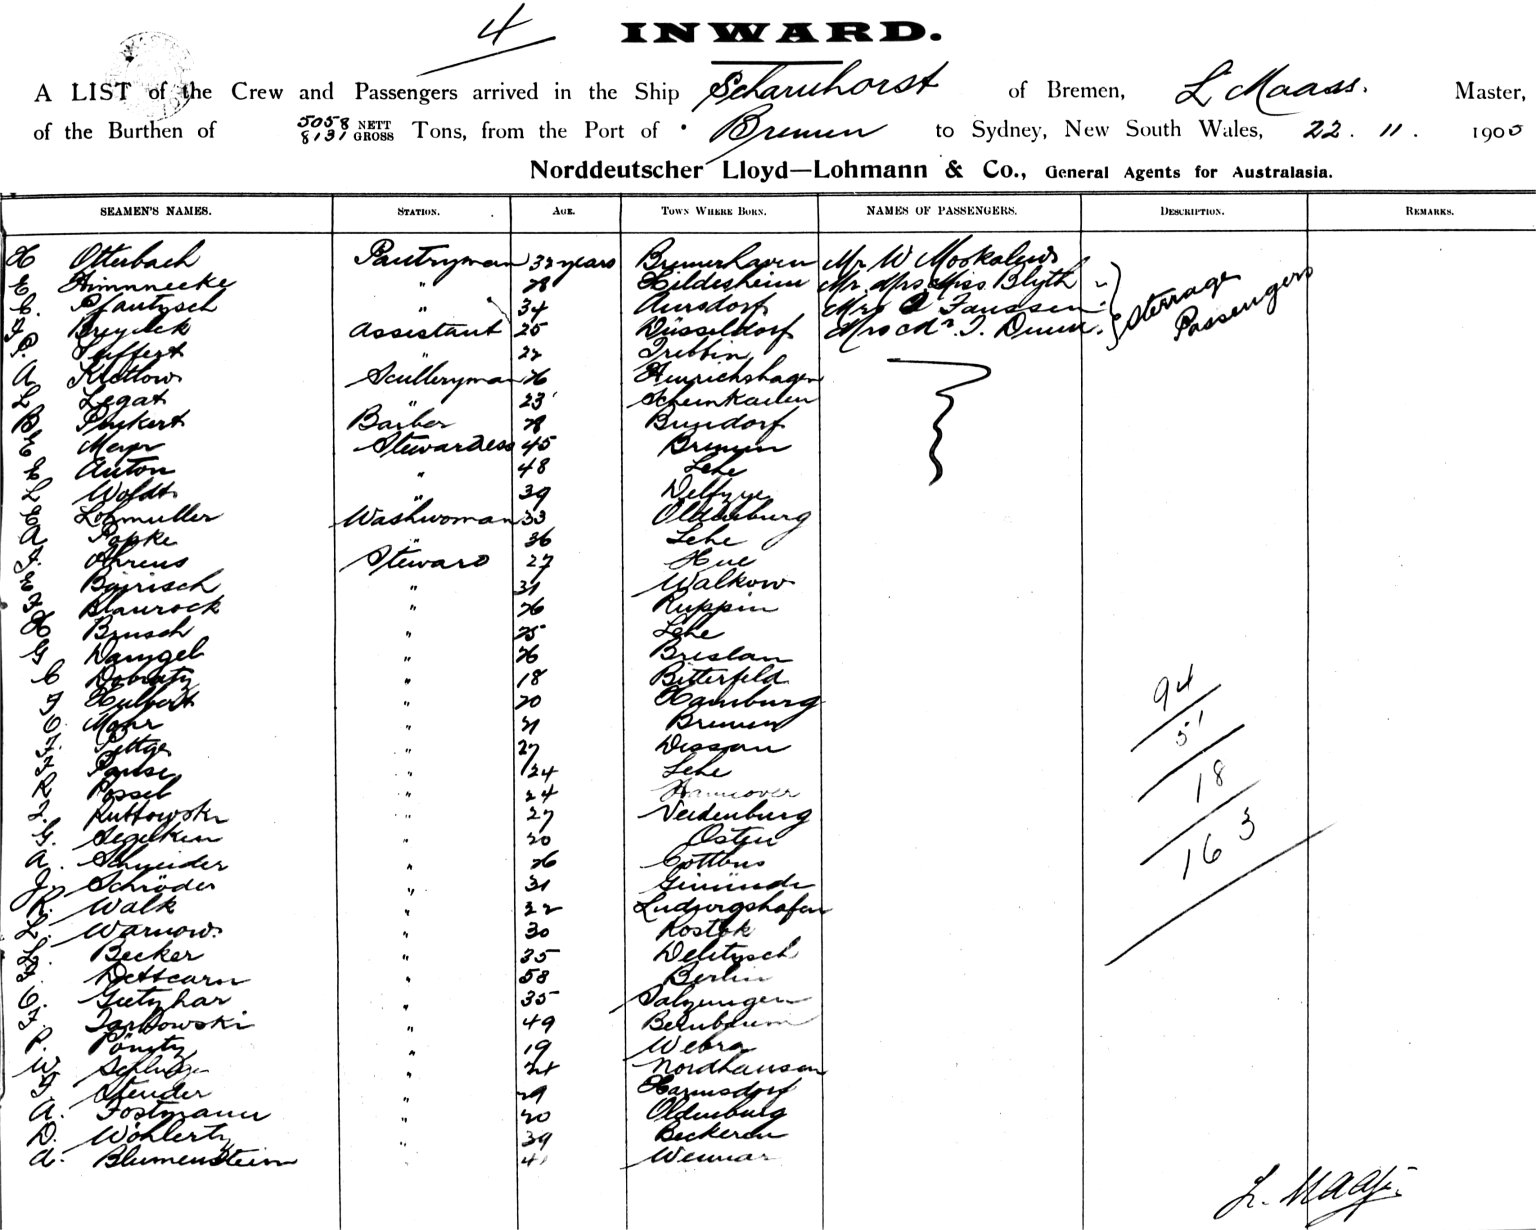 4
INWARD.
A LIST of the Crew and Passengers arrived in the Ship Scharnhorst of Bremen, L Maass. Master,
of the Burthen of 5058 NETT 8131 GROSS Tons, from the Port of Bremen to Sydney, New South Wales, 22 . 11 . 1905
Norddeutscher Lloyd—Lohmann & Co., General Agents for Australasia.
SEAMEN'S NAMES. STATION. AGE. TOWN WHERE BORN. NAMES OF PASSENGERS. DESCRIPTION. REMARKS.
H Otterbach Pantryman 32 years Bremerhaven Mr W
E Himnnecke " 28 Hildesheim Mr Mrs Miss Blyth " Sterrage
C. Pfautzsch " 34 Aursdorf Mrs Faussen " Passengers
Breyeck Assistant 25 Düsseldorf Mrs I. Dunn
Seiffert " 22 Trebbin
A Kietlow Scülleryman 26 Hinrichshagen
Legat " 23
B Peukert Barber 28 Bundorf
Meyer Stewardess 45 Bremen
Anton " 48 Lehe
Woldt " 39 Delfzye
Lohmuller Washwoman 33 Oldenburg
A Popke " 36 Lehe
Ahrens Steward 27 Hue
Bairisch " 31 Walkow
Blaurock " 26 Ruppin
Brusch " 25 Lehe
G Damgel " 26 Breslau
C " 18 Bitterfeld
F Hulpert " 20 Hamburg 94
C Mohr " 21 Bremen 51
Pettge " 27 Dessau
Pause " 24 Lehe 18
R Possel " 24 Hannover
Ruttowski " 27 Neidenburg
G. Segelken " 20 Osten
A. Schneider " 26 Cottbus 163
Schröder " 31 Gmünde
R. Walk " 22 Ludwigshafen
Warnow. " 30 Rostok
Becker " 35 Delitzsch
Dettcarn " 58 Berlin
C. Gutzhar " 35 Salzungen
F. Tarkowski " 49 Bernbaum
P. Pönitz " 19 Webra
W Schluze " 24 Nordhausen
F. Stender " 29 Harmsdorf
A. Fostmann " 20 Oldenburg
D. Wöhlertz " 39 Beckeren
A. Blumenstein " 41 Weimar
L. Maass.